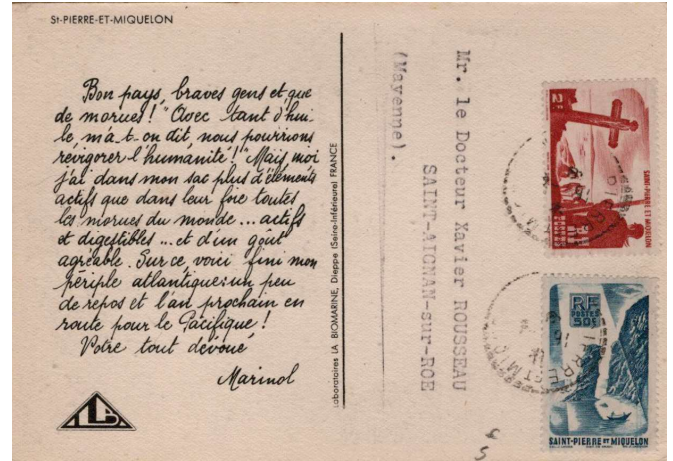 St-PIERRE-ET-MIQUELON
Bon pays, braves gens et que
de morues! "Avec tant d'hui-
le m'a-t-on dit, nous pourrions
revigorer l'humanité!" Mais, moi
j'ai dans mon sac plus d'éléments
actifs que dans leur foie toutes
les morues du monde... actifs
et digestibles... et d'un goût
agréable. Sur ce voici fini mon
périple atlantique: un peu
de repos et l'an prochain en
route pour le Pacifique!
Votre tout dévoué
Marinol
LLB
Laboratoires LA BIOMARINE, Dieppe (Seine-Inférieure) FRANCE
Mr. le Docteur Xavier ROUSSEAU
SAINT-AIGNAN-sur-ROE
(Mayenne).
2F
SAINT-PIERRE ET MIQUELON
RF
POSTES
50c
SAINT-PIERRE ET MIQUELON